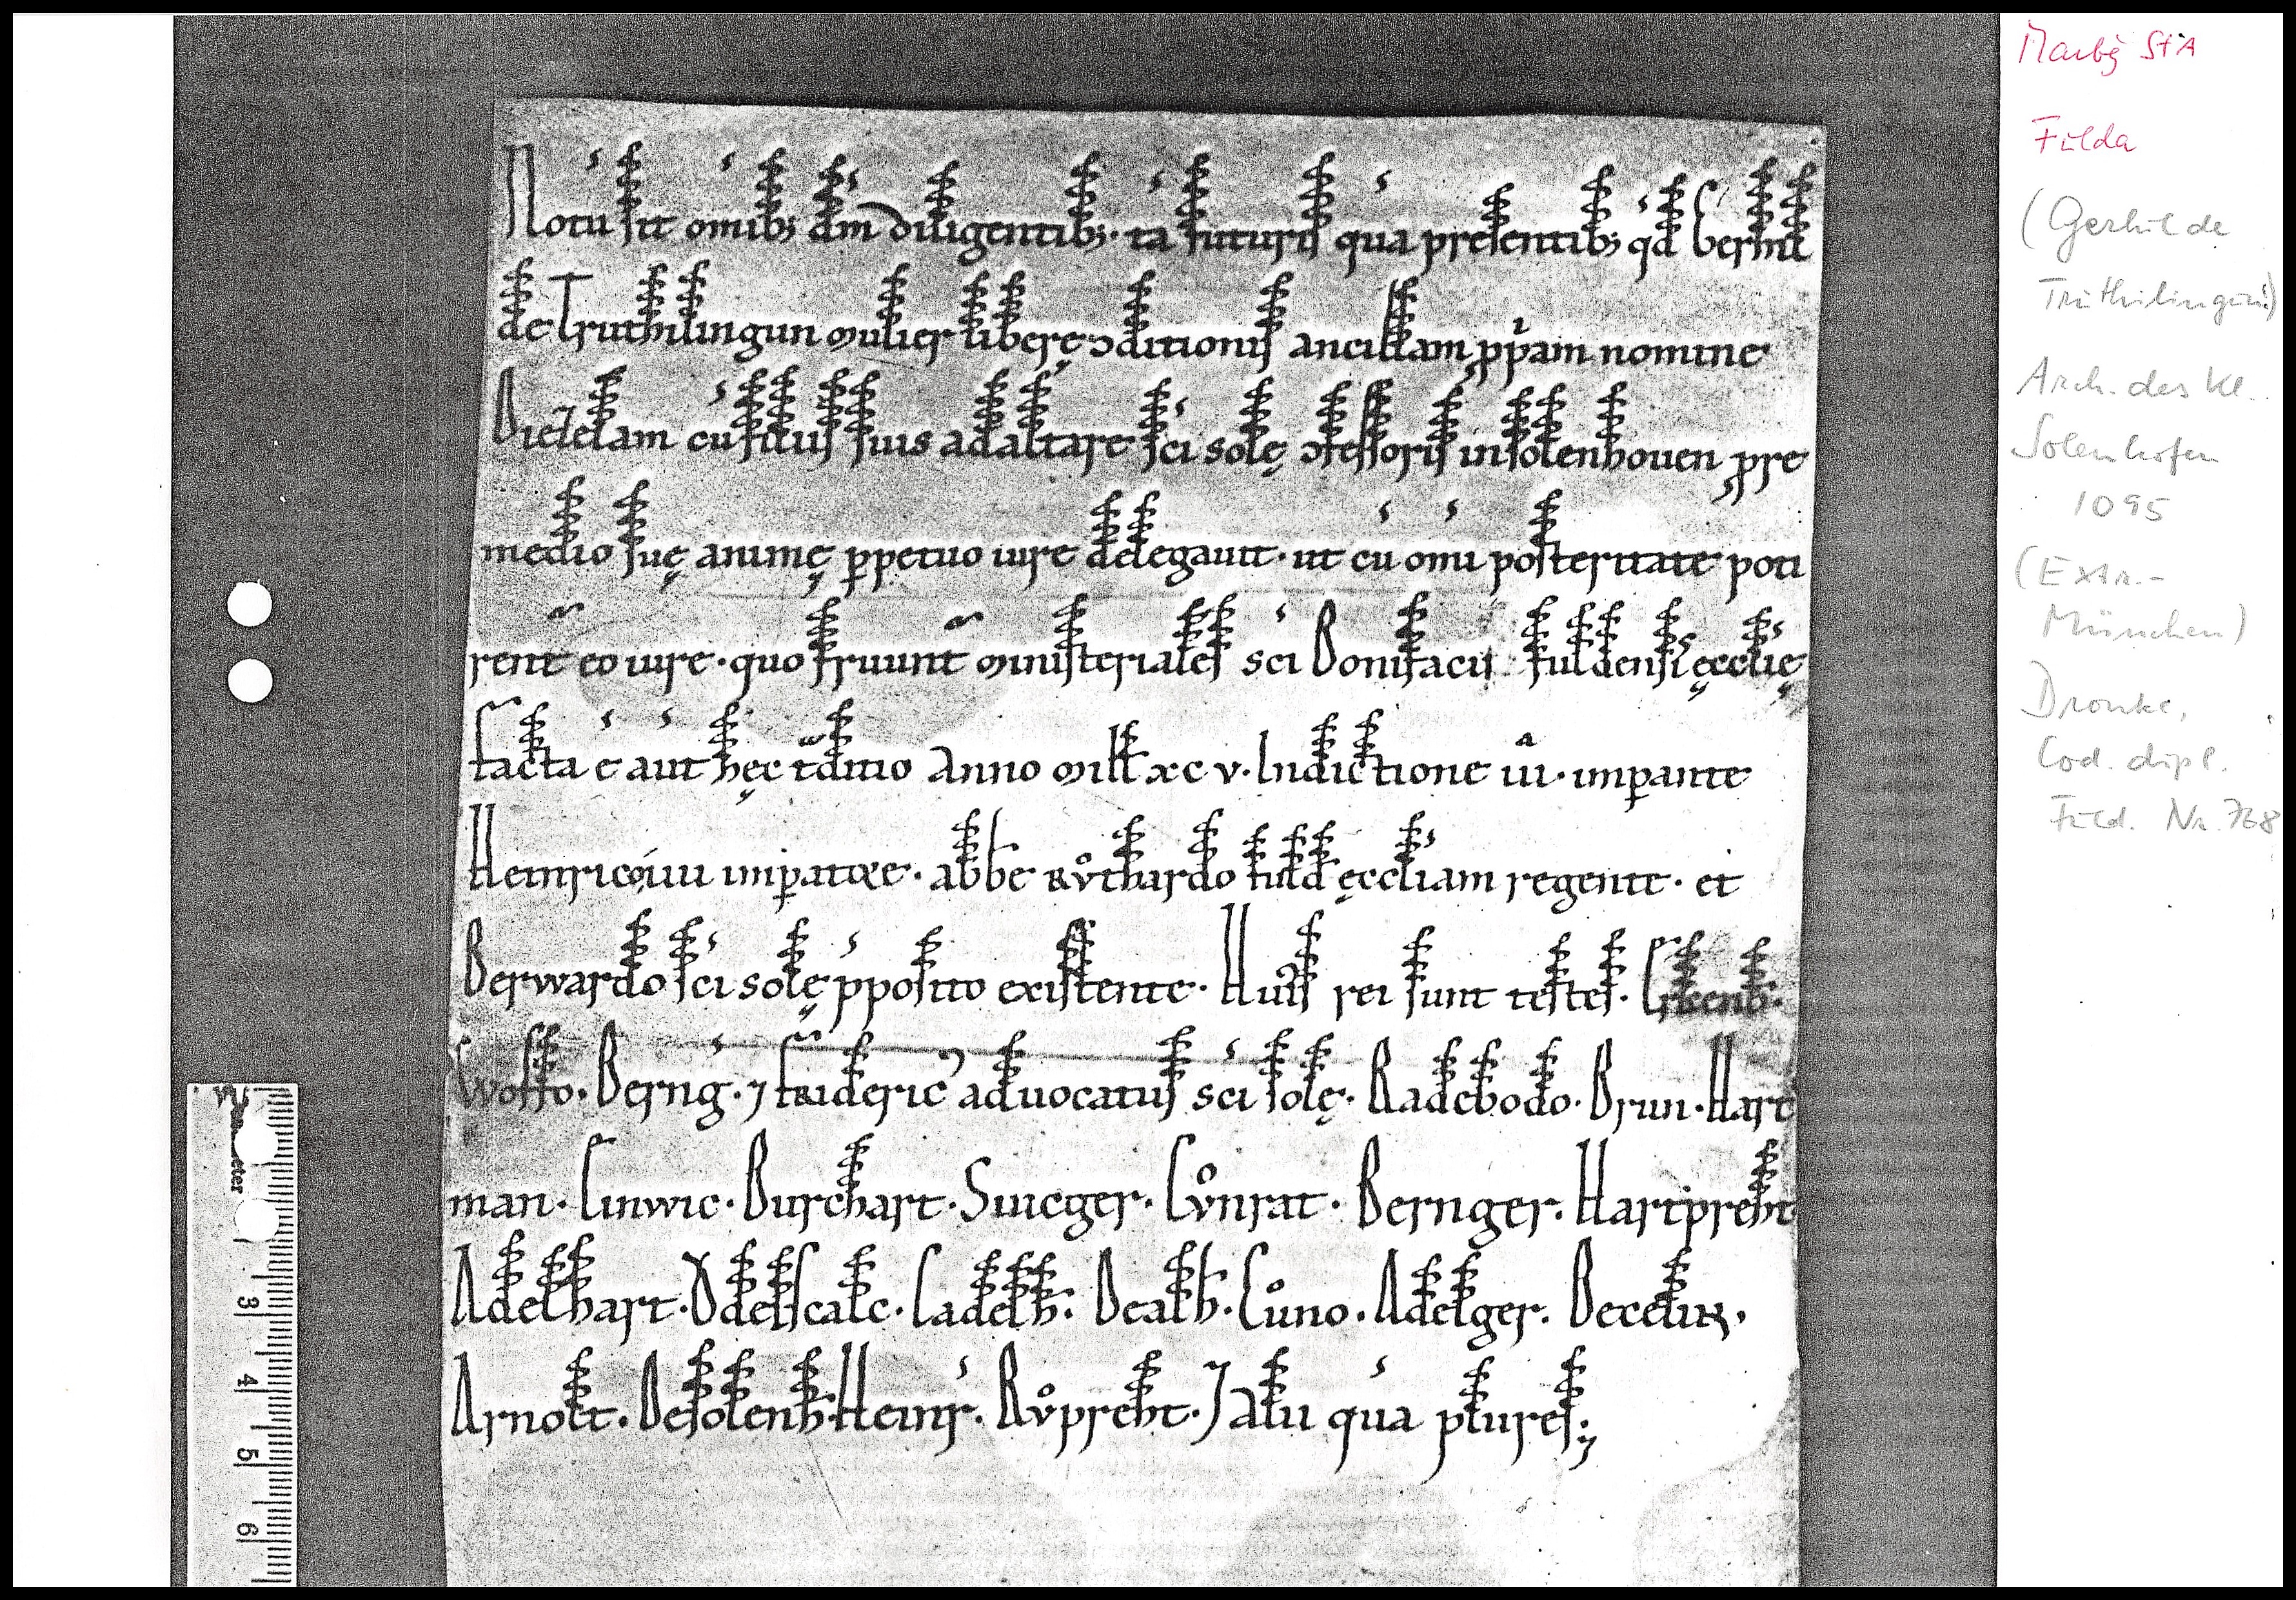 Notu sit omib; dm diligentib;. ta futuris qua presentib; qd Gerhilt
de Truthilingun mulier liberę ↄditionis ancillam ppriam nomine
Diezelam cu filiis suis ad altare sci solę ↄfessoris in solenhouen p re
medio suę animę ppetuo iure delegauit. ut cu omi posteritate poti
rent eo iure. quo fruunt ministeriales sci Bonifacii fuldensis ęcclię
facta e aut hęc tditio Anno mill xc v. Indictione iii. impante
Heinrico iiii impatore. abbe Rvͦthardo fuld ęccliam regente. et
Berwardo sci solę pposito existente. Huius rei sunt testes.
Woffo. Berng. ⁊ fRideric' aduocatus sci solę. Radebodo. Brun. Hart
man. Linwic. Burchart. Suieger. Cvͦnrat. Bernger. Hartpreht
Adelhart. Vdelscalc. Cadelh. Dealh. Cuͦno. Adelger. Becelin.
Arnolt. De solenh. Heinr. Rvͦpreht. ⁊ alii qua plures.;
Marbg StA
Fulda
(Gerhilt de
Truthilingun)
Arch. des Kl.
Solenhofen
1095
(Extr.-
München)
Dronke,
Cod. dipl.
Fuld. Nr. 768
3
4
5
6